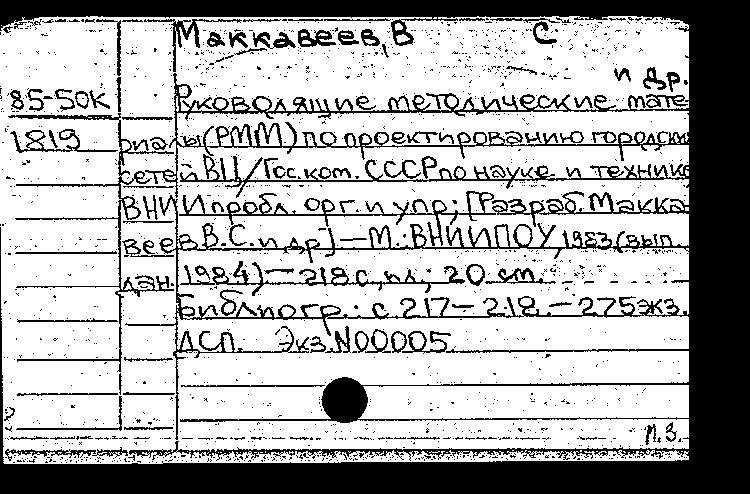 Маккавеев, В С
и др.
85-50к Руководящие методические мате-
1819 риалы (РММ) по проектированию городских
сетей ВЦ/Гос.ком. СССР по науке и технике
ВНИИ пробл. орг. и упр; [Разраб. Макка-
веев В.С. и др] — М.: ВНИИПОУ, 1983 (вып.
дан. 1984) — 218 с, ил; 20 см.
Библиогр.: с. 217 — 218. — 275 экз.
ДСП. Экз. N00005.
п.з.